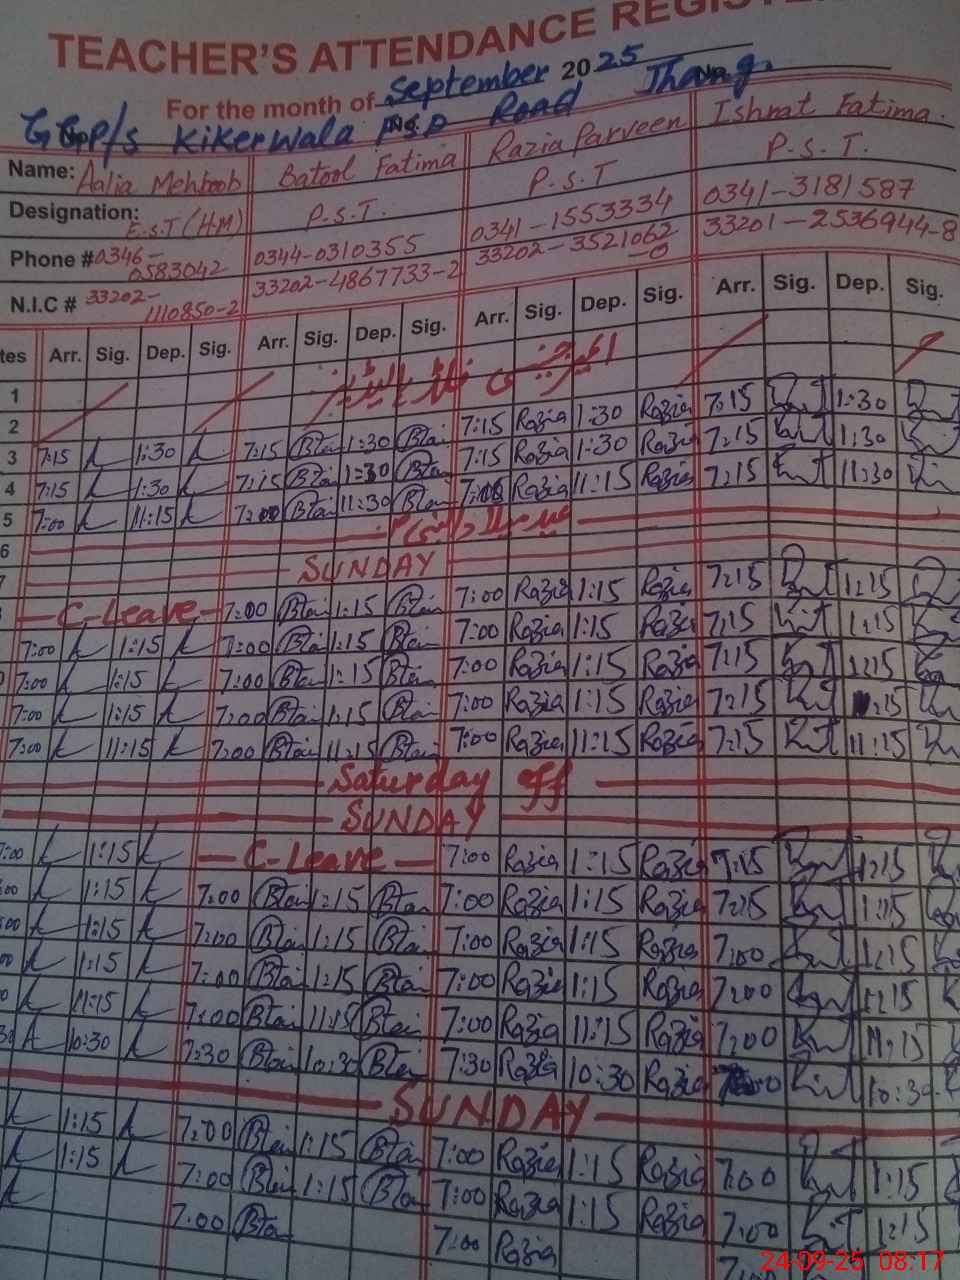 TEACHER'S ATTENDANCE REGISTER
For the month of September 2025
Kikerwala Road Jhang.
Name: Aalia Mehboob Batool Fatima Razia Parveen Ishrat Fatima.
Designation: E.S.T (H.M) P.S.T. P.S.T P.S.T.
Phone # 0346-0583042 0344-0310355 0341-1553334 0341-3181587
N.I.C # 33202-1110850-2 33202-4867733-2 33202-3521062-0 33201-2536944-8
Arr. Sig. Dep. Sig. Arr. Sig. Dep. Sig. Arr. Sig. Dep. Sig. Arr. Sig. Dep. Sig.
1
2
3 7:15 1:30 7:15 1:30 7:15 Razia 1:30 Razia 7:15 1:30
4 7:15 1:30 7:15 1:30 7:15 Razia 1:30 Razia 7:15 1:30
5 7:00 11:15 7:00 11:30 Razia 11:15 Razia 7:15 11:30
6
SUNDAY
C-Leave 7:00 1:15 7:00 Razia 1:15 Razia 7:15 1:15
7:00 1:15 7:00 1:15 7:00 Razia 1:15 Razia 7:15 1:15
7:00 1:15 7:00 1:15 7:00 Razia 1:15 Razia 7:15 1:15
7:00 1:15 7:00 1:15 7:00 Razia 1:15 Razia 7:15
7:00 11:15 7:00 11:15 7:00 Razia 11:15 Razia 7:15 11:15
Saturday off
SUNDAY
7:00 1:15 C-Leave 7:00 Razia 1:15 Razia 7:15 1:15
1:15 7:00 1:15 7:00 Razia 1:15 Razia 7:15 1:15
1:15 7:00 1:15 7:00 Razia 1:15 Razia 7:00 1:15
1:15 7:00 1:15 7:00 Razia 1:15 Razia 7:00 1:15
11:15 7:00 11:15 7:00 Razia 11:15 Razia 7:00 11:15
10:30 7:30 10:30 7:30 Razia 10:30 Razia 10:30
SUNDAY
1:15 7:00 1:15 7:00 Razia 1:15 Razia 7:00 1:15
1:15 7:00 1:15 7:00 Razia 1:15 Razia 7:00 1:15
7:00 7:00 Razia
24-09-25 08:17